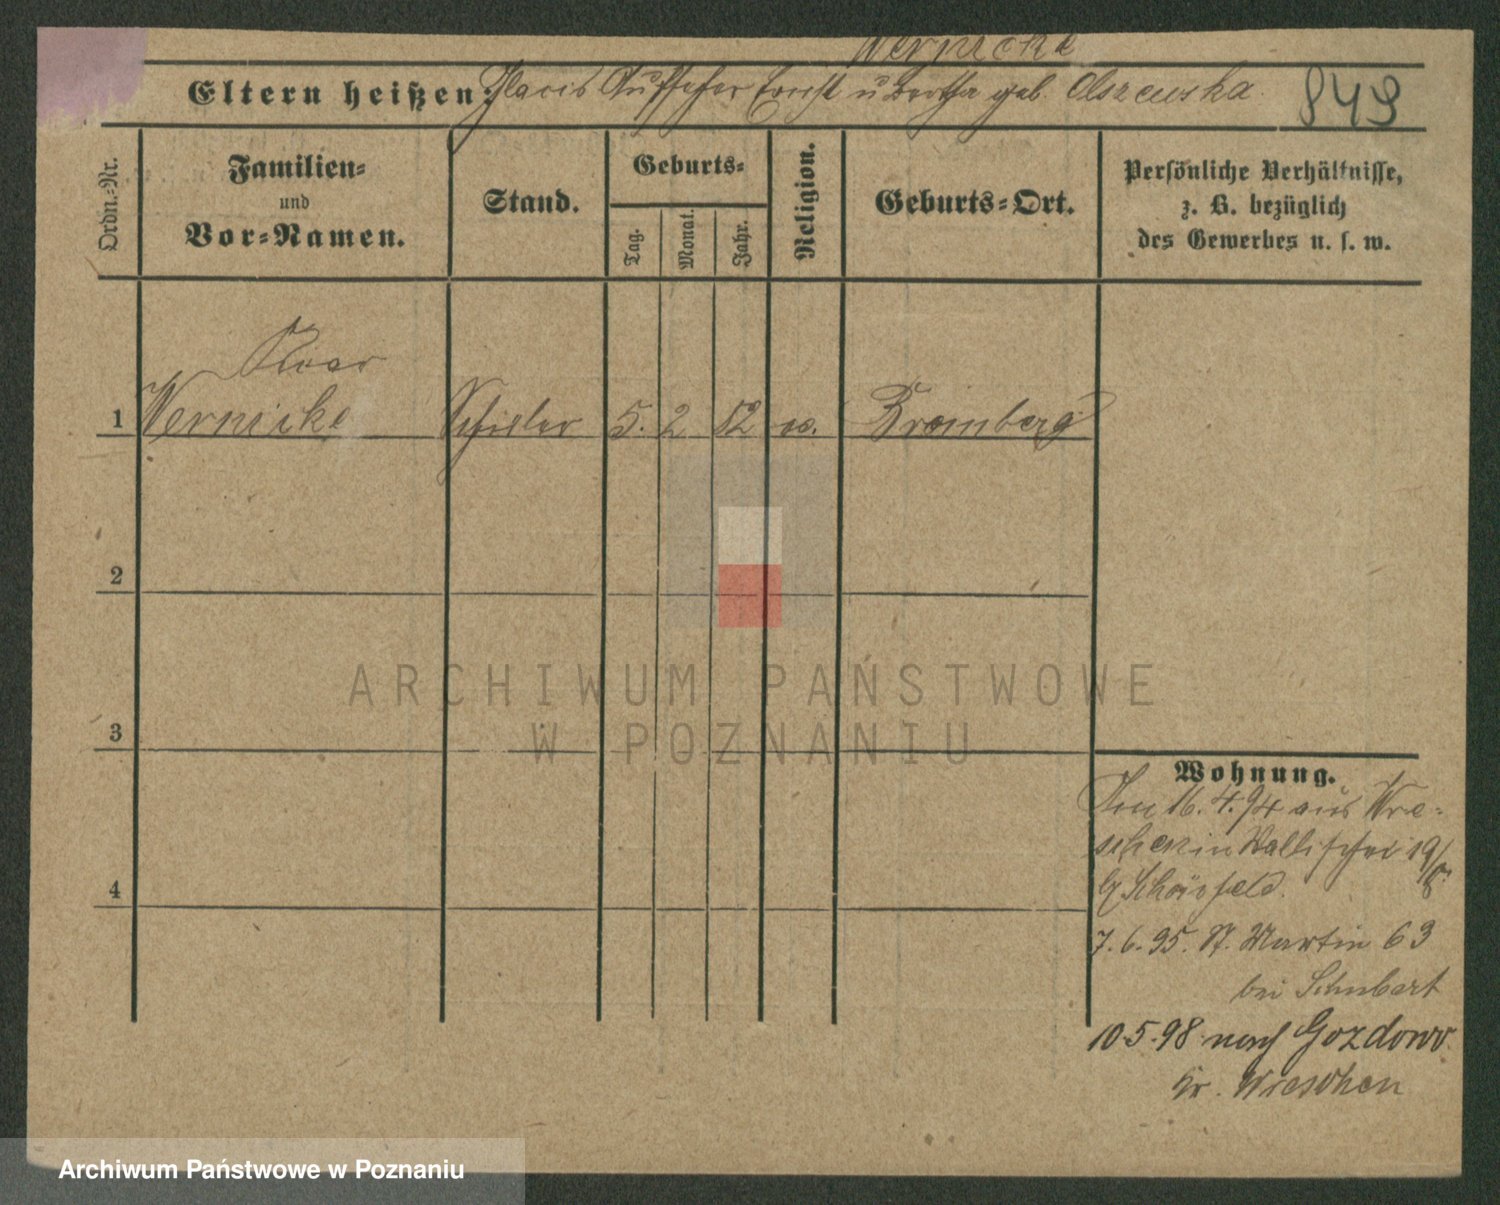 Wernicke
Eltern heißen: Ernst u Bertha geb. Olszewska
849
Ordn.-Nr.
Familien-
und
Vor-Namen.
Stand.
Geburts-
Tag.
Monat.
Jahr.
Religion.
Geburts-Ort.
Persönliche Verhältnisse,
z. B. bezüglich
des Gewerbes u. s. w.
1 Wernicke Schüler 5. 2 82 Bromberg
2
3
4
Wohnung.
16. 4. 94 aus Wre-
schen in Wallischei
7. 6. 95. St. Martin 63
bei Schubert
10.5.98 nach Gozdowo
Kr. Wreschen
ARCHIWUM PAŃSTWOWE
W POZNANIU
Archiwum Państwowe w Poznaniu